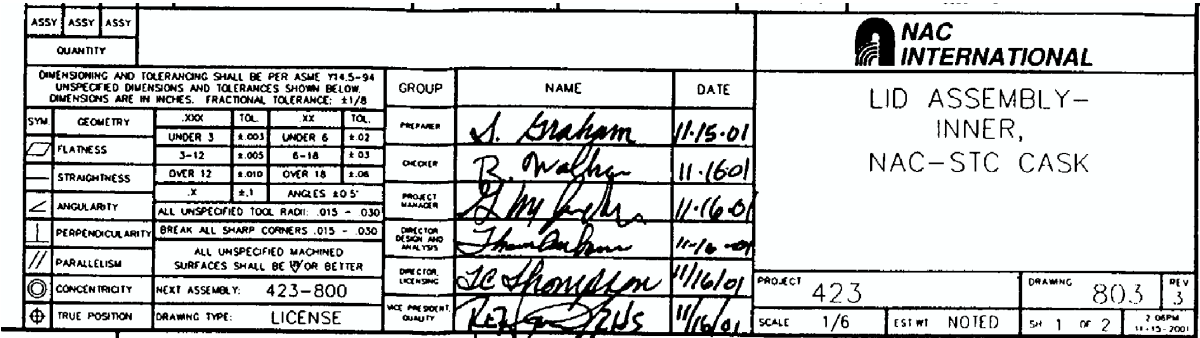 ASSY ASSY ASSY
QUANTITY
DIMENSIONING AND TOLERANCING SHALL BE PER ASME Y14.5-94
UNSPECIFIED DIMENSIONS AND TOLERANCES SHOWN BELOW.
DIMENSIONS ARE IN INCHES. FRACTIONAL TOLERANCE: ±1/8
SYM GEOMETRY .XXX TOL. .XX TOL.
UNDER 3 ±.003 UNDER 6 ±.02
FLATNESS 3-12 ±.005 6-18 ±.03
STRAIGHTNESS OVER 12 ±.010 OVER 18 ±.06
.X ±.1 ANGLES ±0.5°
ANGULARITY ALL UNSPECIFIED TOOL RADII: .015 - .030
PERPENDICULARITY BREAK ALL SHARP CORNERS .015 - .030
ALL UNSPECIFIED MACHINED
// PARALLELISM SURFACES SHALL BE OR BETTER
CONCENTRICITY NEXT ASSEMBLY: 423-800
TRUE POSITION DRAWING TYPE: LICENSE
GROUP NAME DATE
PREPARER S. Graham 11-15-01
CHECKER B. 11-16-01
PROJECT
MANAGER 11-16-01
DIRECTOR
DESIGN AND
ANALYSIS 11-16-01
DIRECTOR,
LICENSING TC Thompson 11/16/01
VICE PRESIDENT
QUALITY 11/16/01
NAC
INTERNATIONAL
LID ASSEMBLY-
INNER,
NAC-STC CASK
PROJECT 423 DRAWING 803 REV 3
SCALE 1/6 EST WT NOTED SH 1 OF 2 2:06PM
11-15-2001